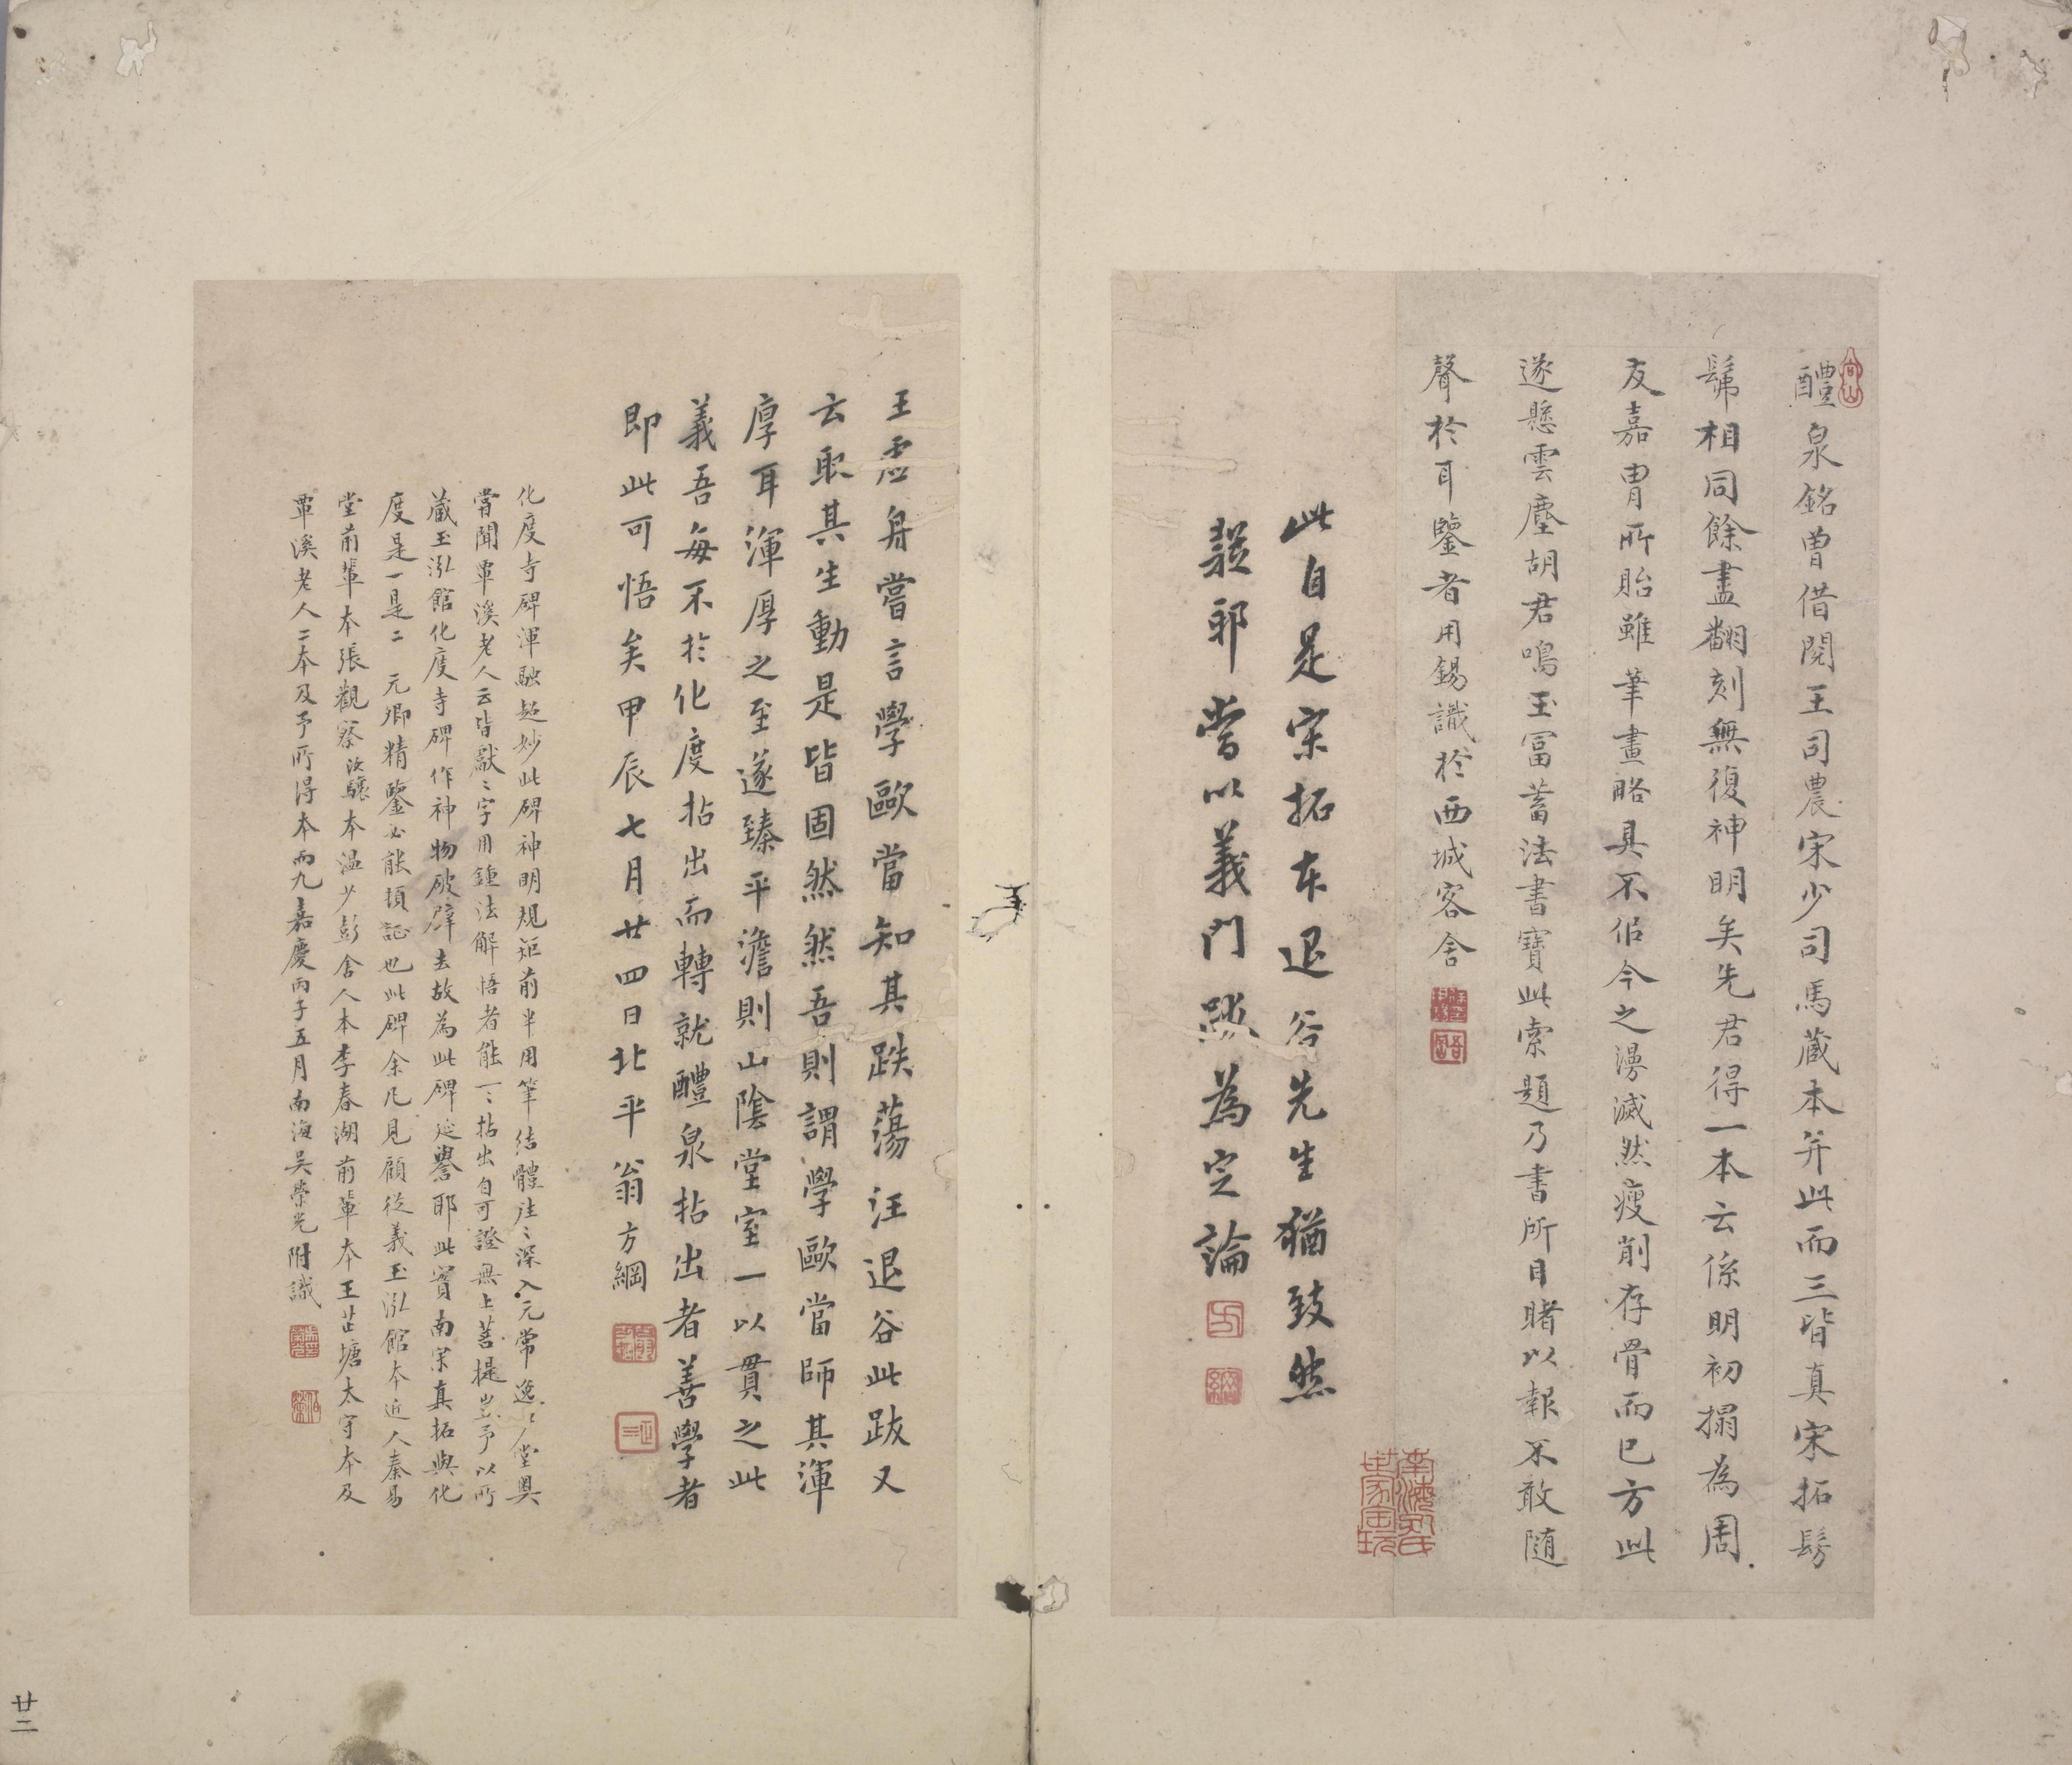 醴泉銘曾借閱王司農宋少司馬藏本并此而三皆真宋拓髣
髴相同餘盡翻刻無復神明矣先君得一本云係明初搨為周
友嘉胄所貽雖筆畫略具不侣今之漫滅然瘦削存骨而已方此
遂懸雲塵胡君鳴玉富蓄法書寶此索題乃書所目睹以報不敢隨
聲於耳鑒者用錫識於西城客舍
此自是宋拓本退谷先生猶致然
疑邪當以義門跋為定論
王虛舟嘗言學歐當知其跌蕩汪退谷此跋又
云取其生動是皆固然然吾則謂學歐當師其渾
厚耳渾厚之至遂臻平澹則山陰堂室一以貫之此
義吾每不於化度拈出而轉就醴泉拈出者善學者
即此可悟矣甲辰七月廿四日北平翁方綱
化度寺碑渾融超妙此碑神明規矩前半用筆結體往〻深入元常逸少堂奧
嘗聞覃溪老人云皆獻〻字用鍾法解悟者能一〻拈出自可證無上菩提豈予以所
藏玉泓館化度寺碑作神物破壁去故為此碑延譽耶此實南宋真拓與化
度是一是二 元卿精鑒必能頊証也此碑余凡見顧從義玉泓館本近人秦易
堂前輩本張觀察汝驤本溫少彭舍人本李春湖前輩本王芷塘太守本及
覃溪老人二本及予所得本而九嘉慶丙子五月南海吳榮光附識
向山
方
綱
南海吳氏
世家
廿二